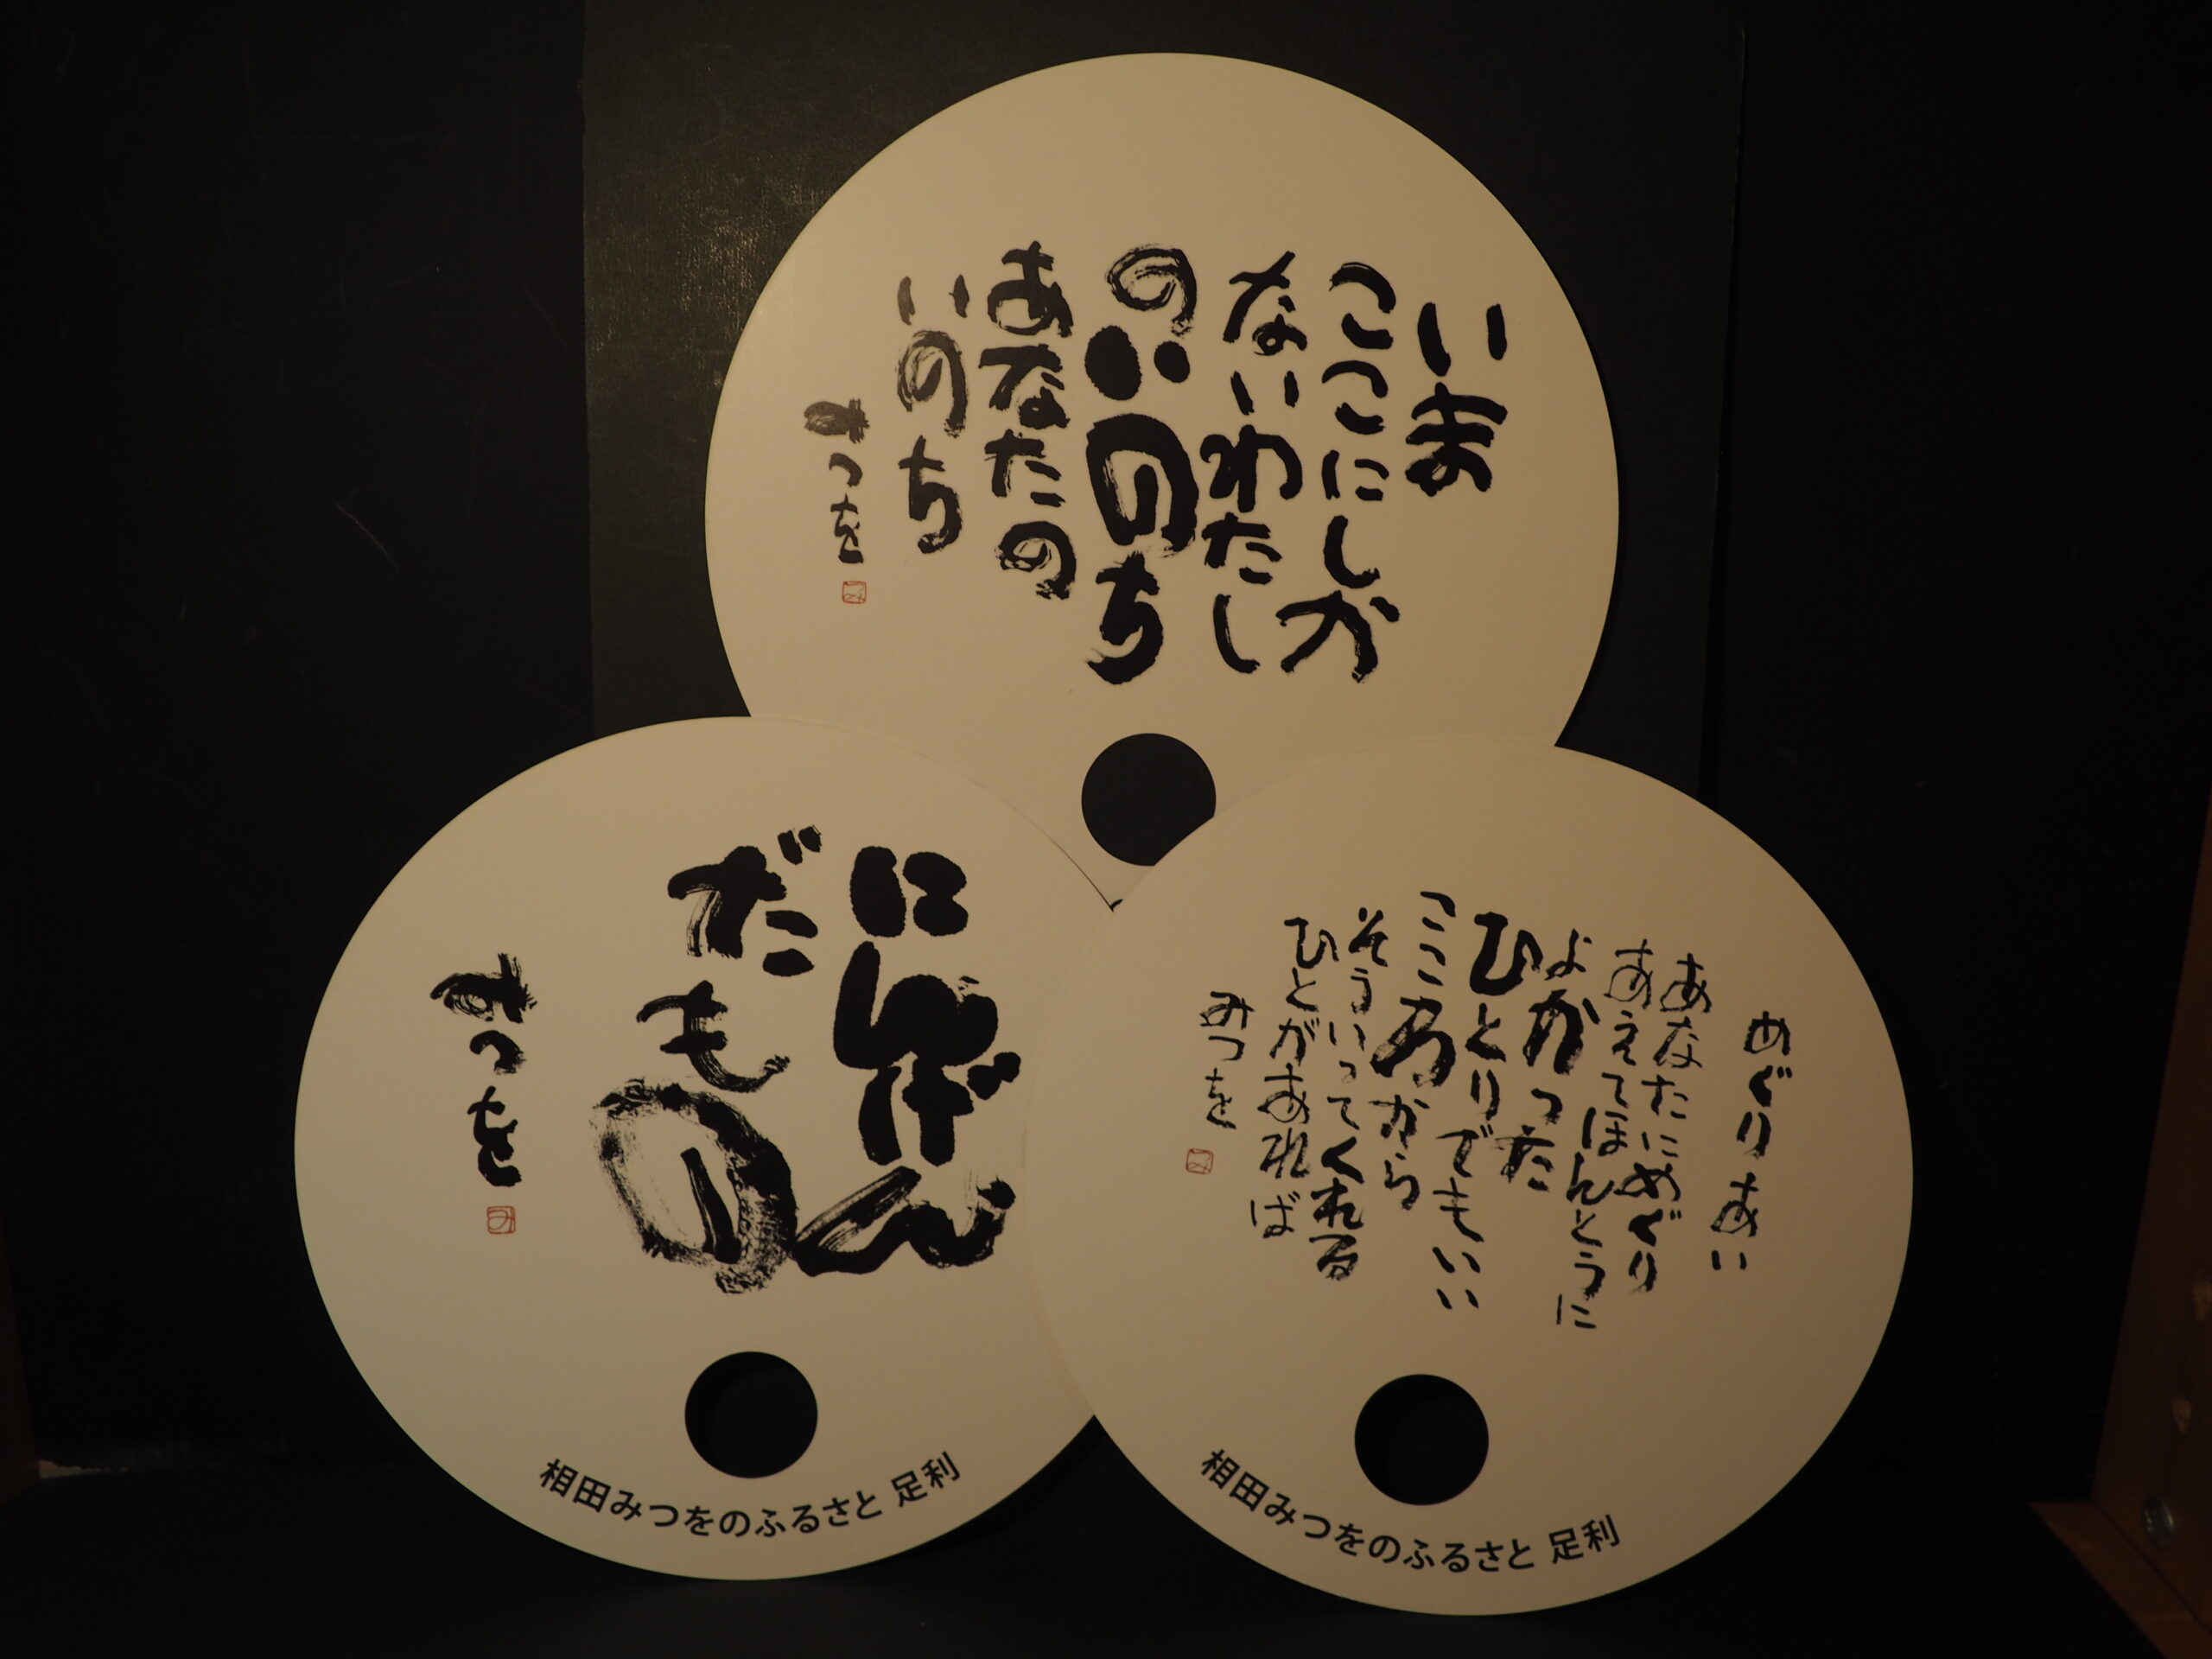 いま
ここにしか
ないわたし
のいのち
あなたの
いのち
みつを
にんげん
だもの
みつを
相田みつをのふるさと 足利
めぐりあい
あなたにめぐり
あえてほんとうに
よかった
ひとりでもいい
こころから
そういってくれる
ひとがあれば
みつを
相田みつをのふるさと 足利